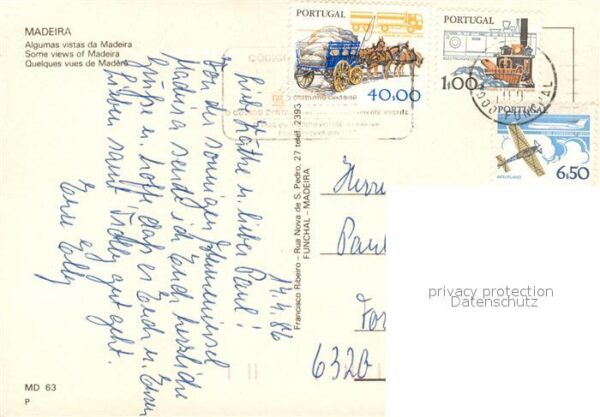 MADEIRA
Algumas vistas da Madeira
Some views of Madeira
Quelques vues de Madère
14.4.86
liebe Käthe u. lieber Paul!
Von der sonnigen Blumeninsel
Madeira sende ich Euch herzliche
Grüße u. hoffe, daß es Euch u. Euren
Lieben samt gut geht.
Eure
MD 63
P
Francisco Ribeiro - Rua Nova de S. Pedro, 27 telef. 2393
FUNCHAL - MADEIRA
PORTUGAL
40,00
PORTUGAL
1,00
PORTUGAL
AEROPLANO
6,50
FUNCHAL
CÓDIGO
Herrn
Paul
6320
privacy protection
Datenschutz